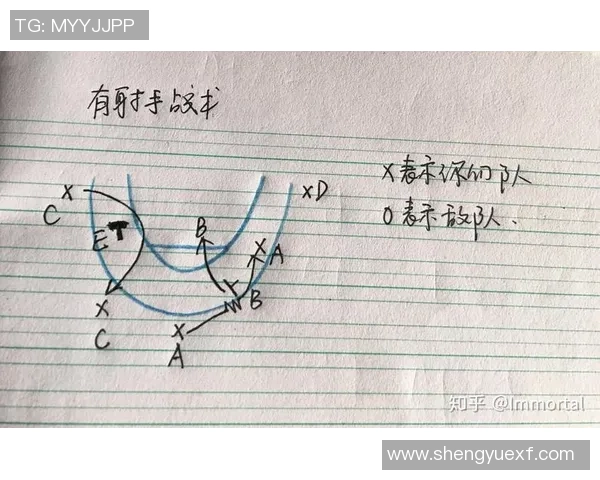 TG: MYYJJPP
有射手战术
X表示你们队
O表示敌队.
X
C
E
B
X
A
XD
X
C
B
X
A
知乎 @Immortal
www.shengyuexf.com